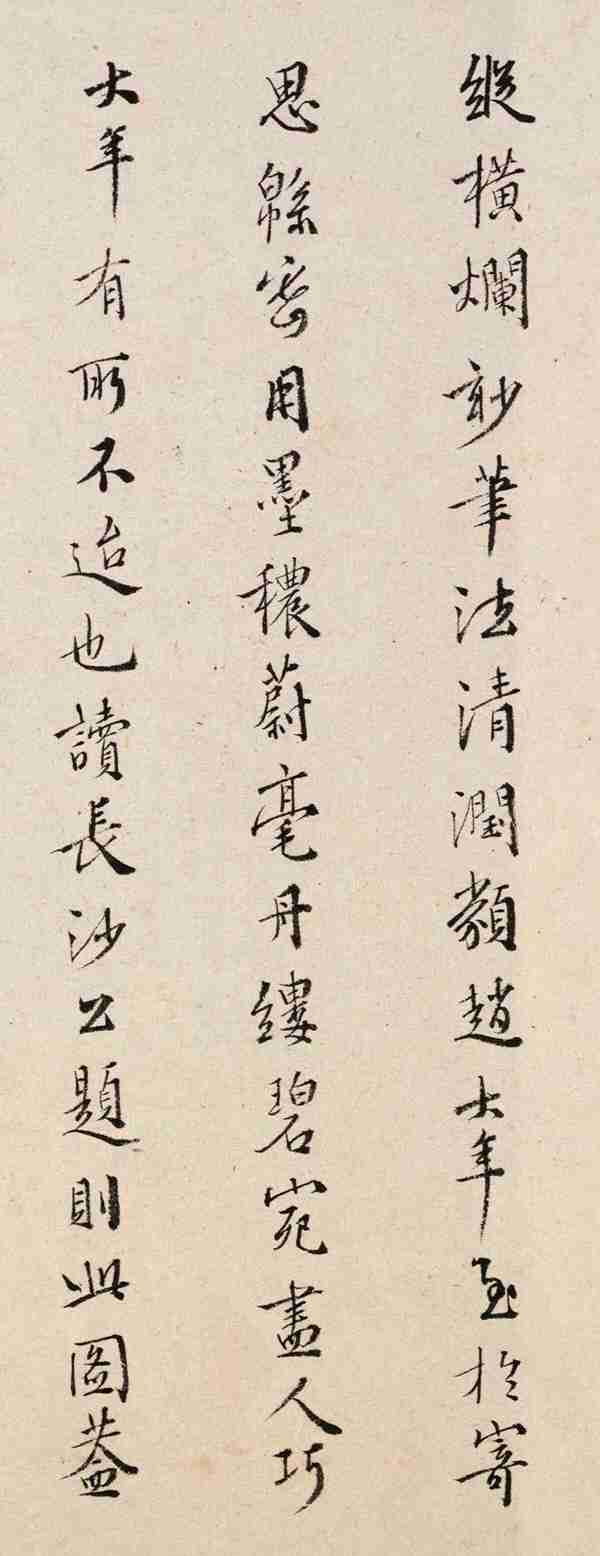 縱橫爛妙筆法清潤類趙大年至於寄
思緜密用墨穠蔚毫丹縷碧宛盡人巧
大年有所不迨也讀長沙公題則此圖蓋